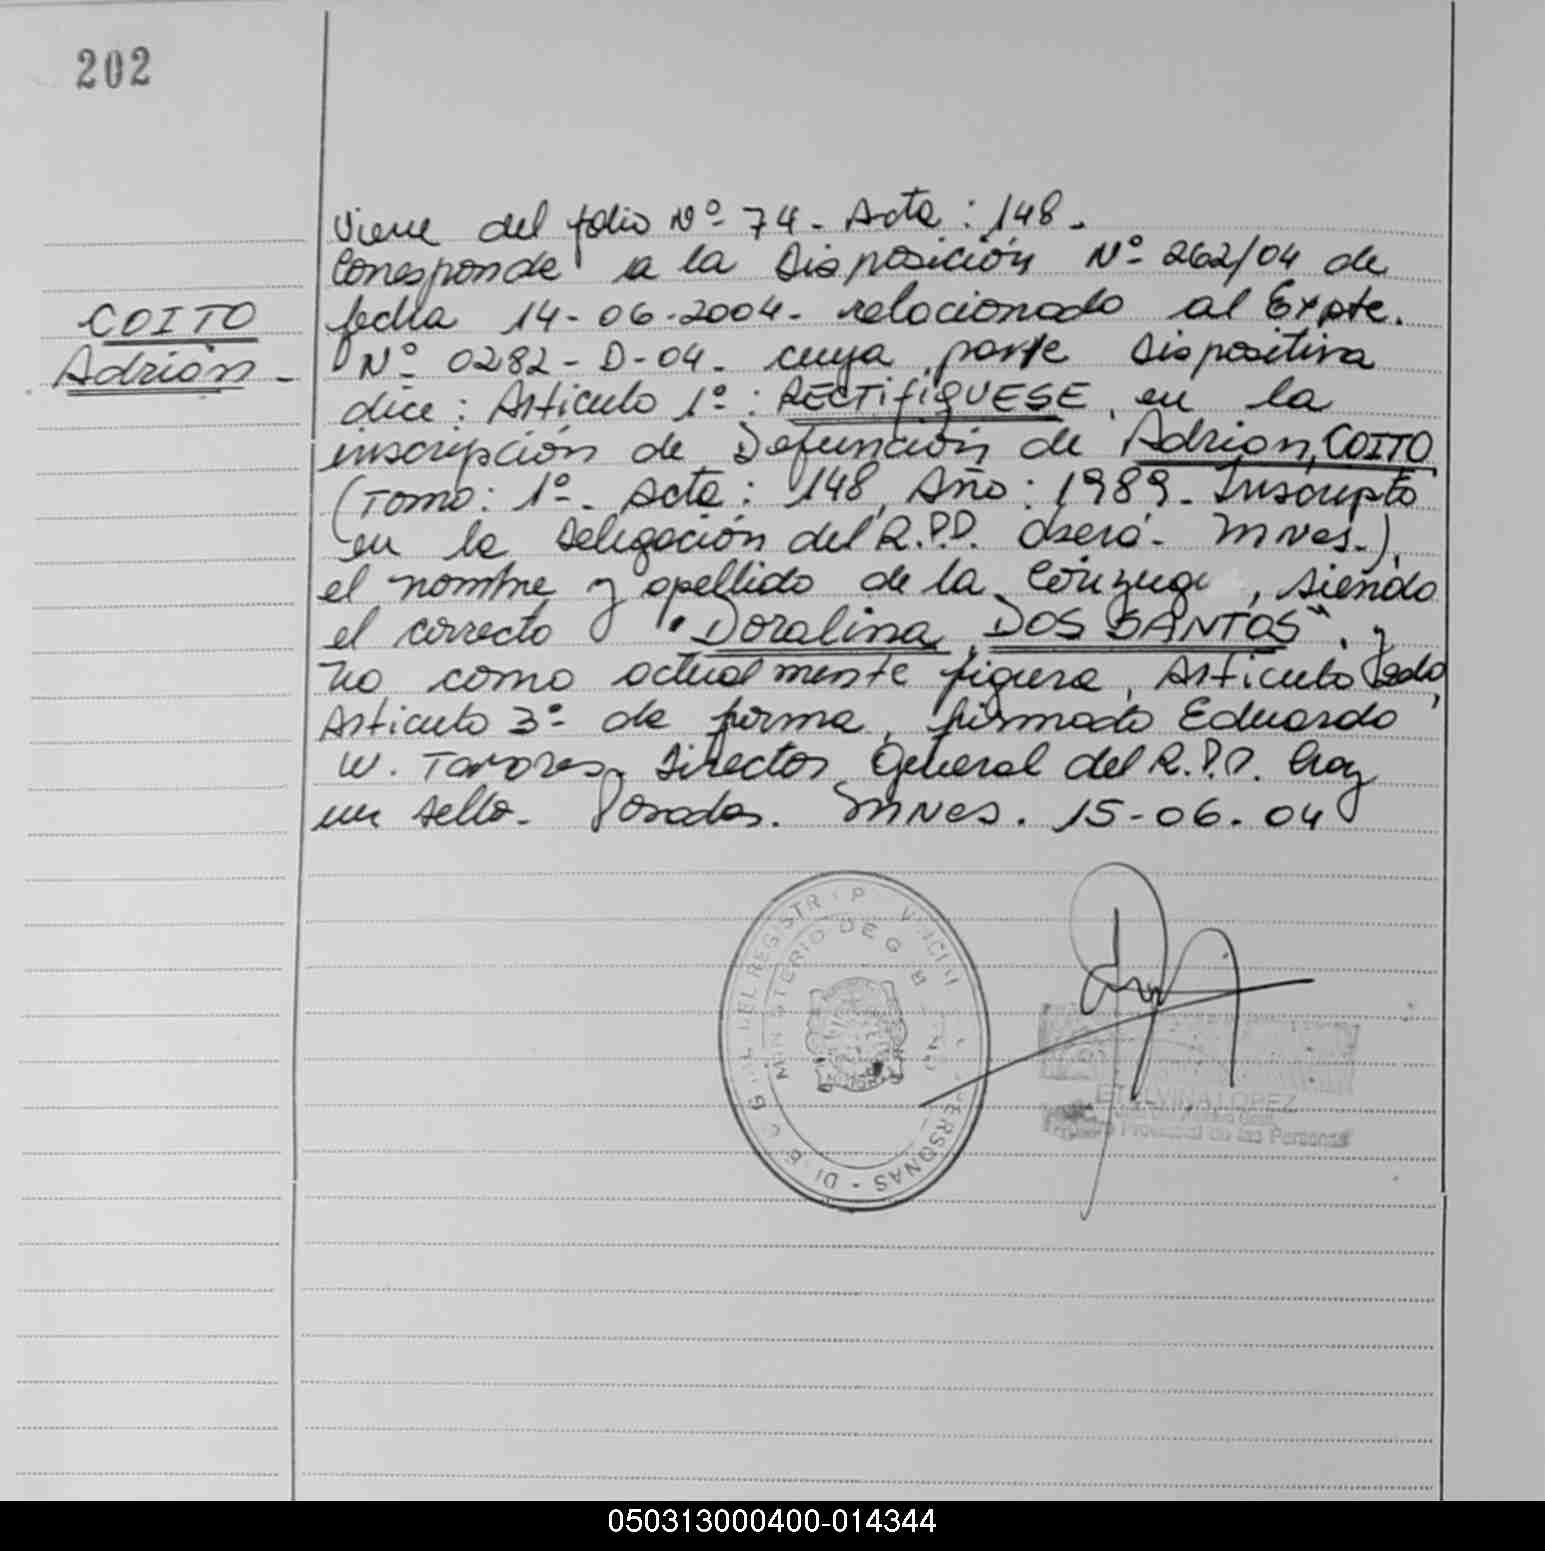 202
COITO
Adrián -
Viene del folio Nº 74 - Acta: 148 -
Corresponde a la Disposición Nº 262/04 de
fecha 14-06-2004 - relacionado al Expte.
Nº 0282-D-04 - cuya parte dispositiva
dice: Artículo 1º: RECTIFIQUESE en la
inscripción de Defunción de Adrián, COITO
(Tomo: 1º - Acta: 148, Año: 1989 - Inscripto
en la Delegación del R.P.P. Oberá - Mnes.),
el nombre y apellido de la Cónyuge, siendo
el correcto "Doralina, DOS SANTOS", y
no como actualmente figura, Artículo 2do,
Artículo 3º de forma, firmado Eduardo
W. Tavares, Director General del R.P.P. hay
un sello - Posadas. Mnes. 15-06-04
MINISTERIO DE
DEL REGISTR
PERSONAS - DI
ETELVINA LOPEZ
Provincial de las Personas
050313000400-014344